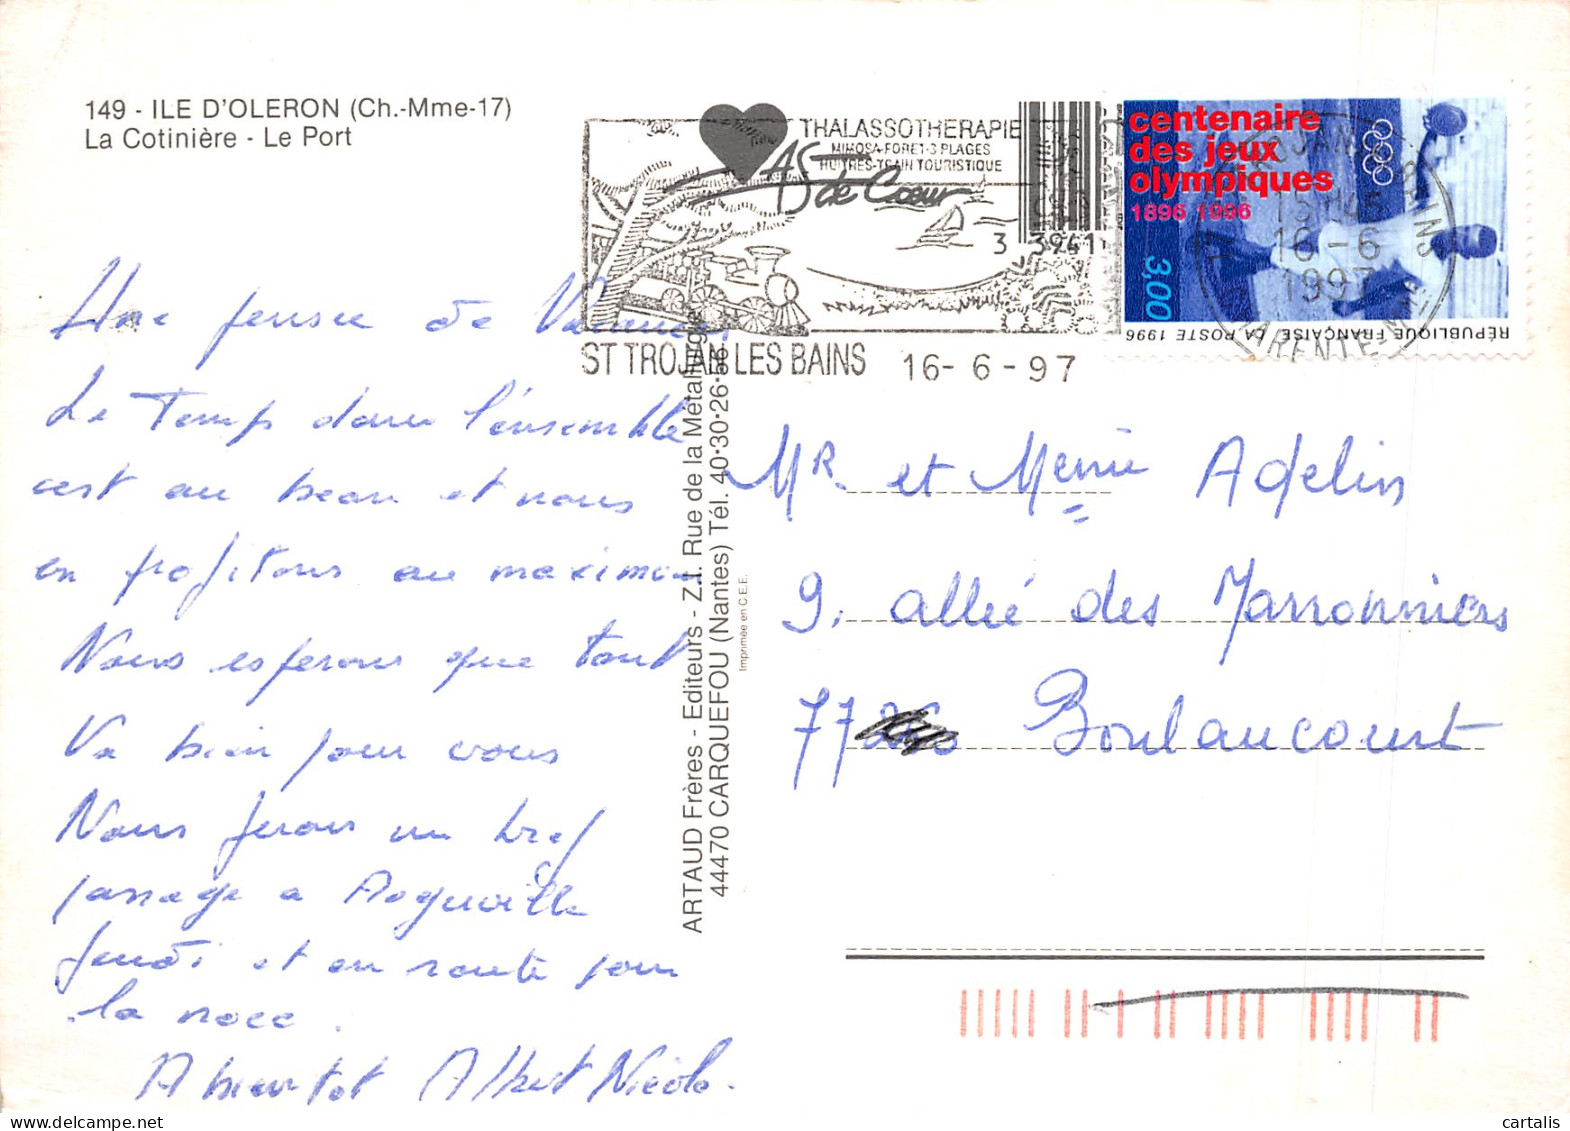 149 - ILE D'OLERON (Ch.-Mme-17)
La Cotinière - Le Port
THALASSOTHERAPIE
MIMOSA-FORET-3 PLAGES
HUITRES-TRAIN TOURISTIQUE
AS de Cœur
3 39241
ST TROJAN LES BAINS 16-6-97
centenaire
des jeux
olympiques
1896 1996
3,00
RÉPUBLIQUE FRANÇAISE LA POSTE 1996
15H
16-6
1997
Une pensée de Vacances,
Le Temps dans l'ensemble
est au beau et nous
en profitons au maximum
Nous esperons que tout
Va bien pour vous
Nous ferons un bref
passage a
Jeudi et en route pour
la noce.
A bientot Albert Nicole.
ARTAUD Frères - Editeurs - Z.I. Rue de la Métallurgie
44470 CARQUEFOU (Nantes) Tél. 40-30-26-56
Imprimée en C.E.E.
MR. et Adelin
9, allée des Marronniers
77 Boulaucourt
cartalis
delcampe.net